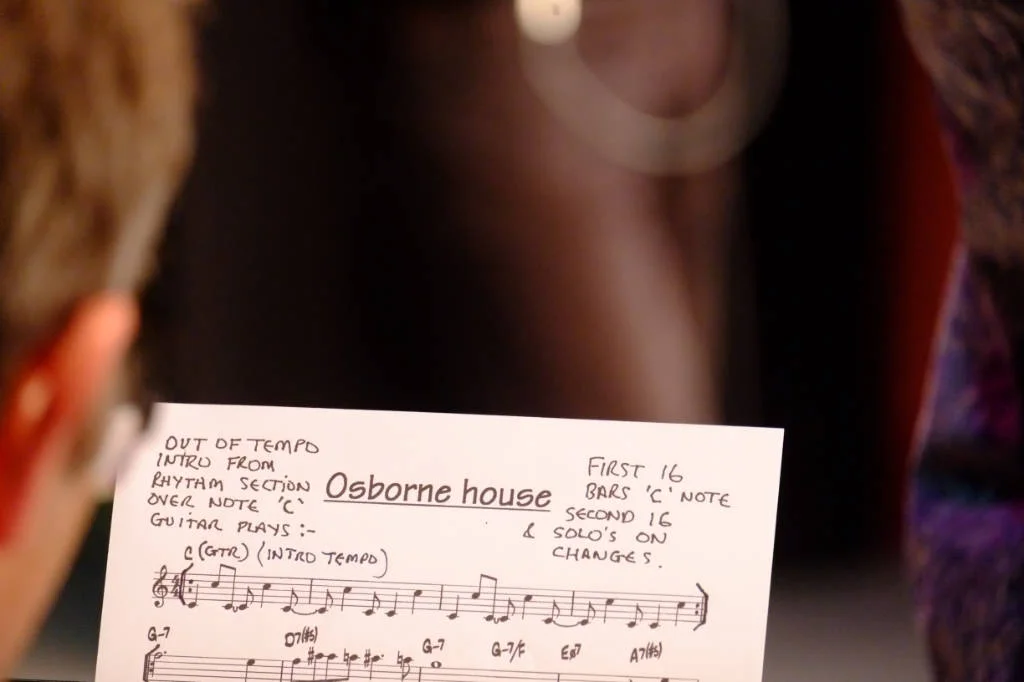 OUT OF TEMPO
INTRO FROM
RHYTHM SECTION
OVER NOTE 'C'
GUITAR PLAYS :-
Osborne house
FIRST 16
BARS 'C' NOTE
SECOND 16
& SOLO'S ON
CHANGES.
C (GTR) (INTRO TEMPO)
4/4
G-7 D7(#5) G-7 G-7/F A7(#5)